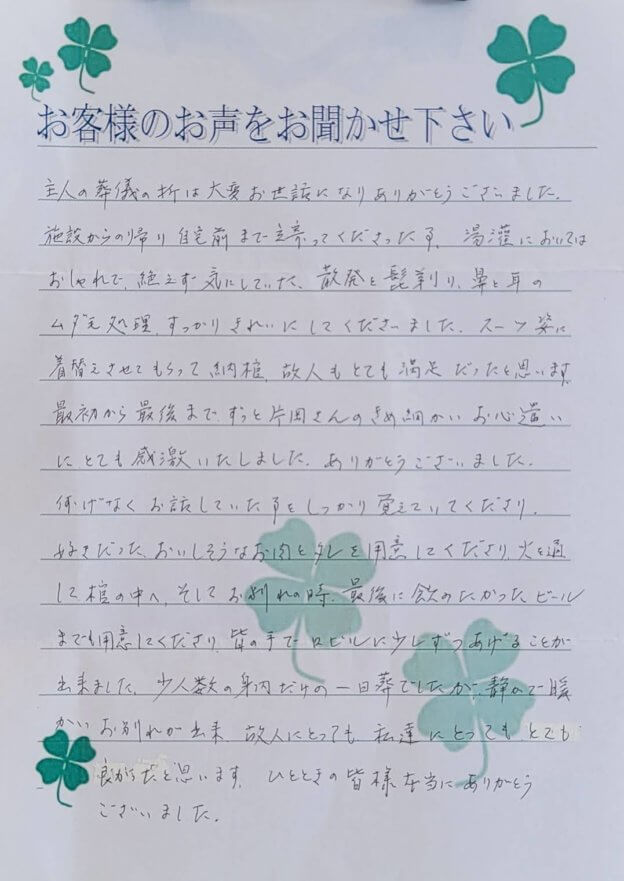 お客様のお声をお聞かせ下さい
主人の葬儀の折は大変お世話になりありがとうございました。
施設からの帰り自宅前まで立寄ってくださった事、湯灌においては
おしゃれで、絶えず気にしていた、散発と髭剃り、鼻と耳の
ムダ毛処理、すっかりきれいにしてくださいました。スーツ姿に
着替えさせてもらって納棺、故人もとても満足だったと思います。
最初から最後まで、ずっと片岡さんのきめ細かいお心遣い
に、とても感激いたしました。ありがとうございました。
何げなくお話していた事をしっかり覚えていてくださり、
好きだった、おいしそうなお肉とタレを用意してくださり、火を通
して棺の中へ、そしてお別れの時、最後に飲みたかったビール
までも用意してくださり、皆の手で口ビルに少しずつあげることが
出来ました。少人数の身内だけの一日葬でしたが、静かで暖
かいお別れが出来、故人にとっても、私達にとっても、とても
良かったと思います。ひとときの皆様本当にありがとう
ございました。